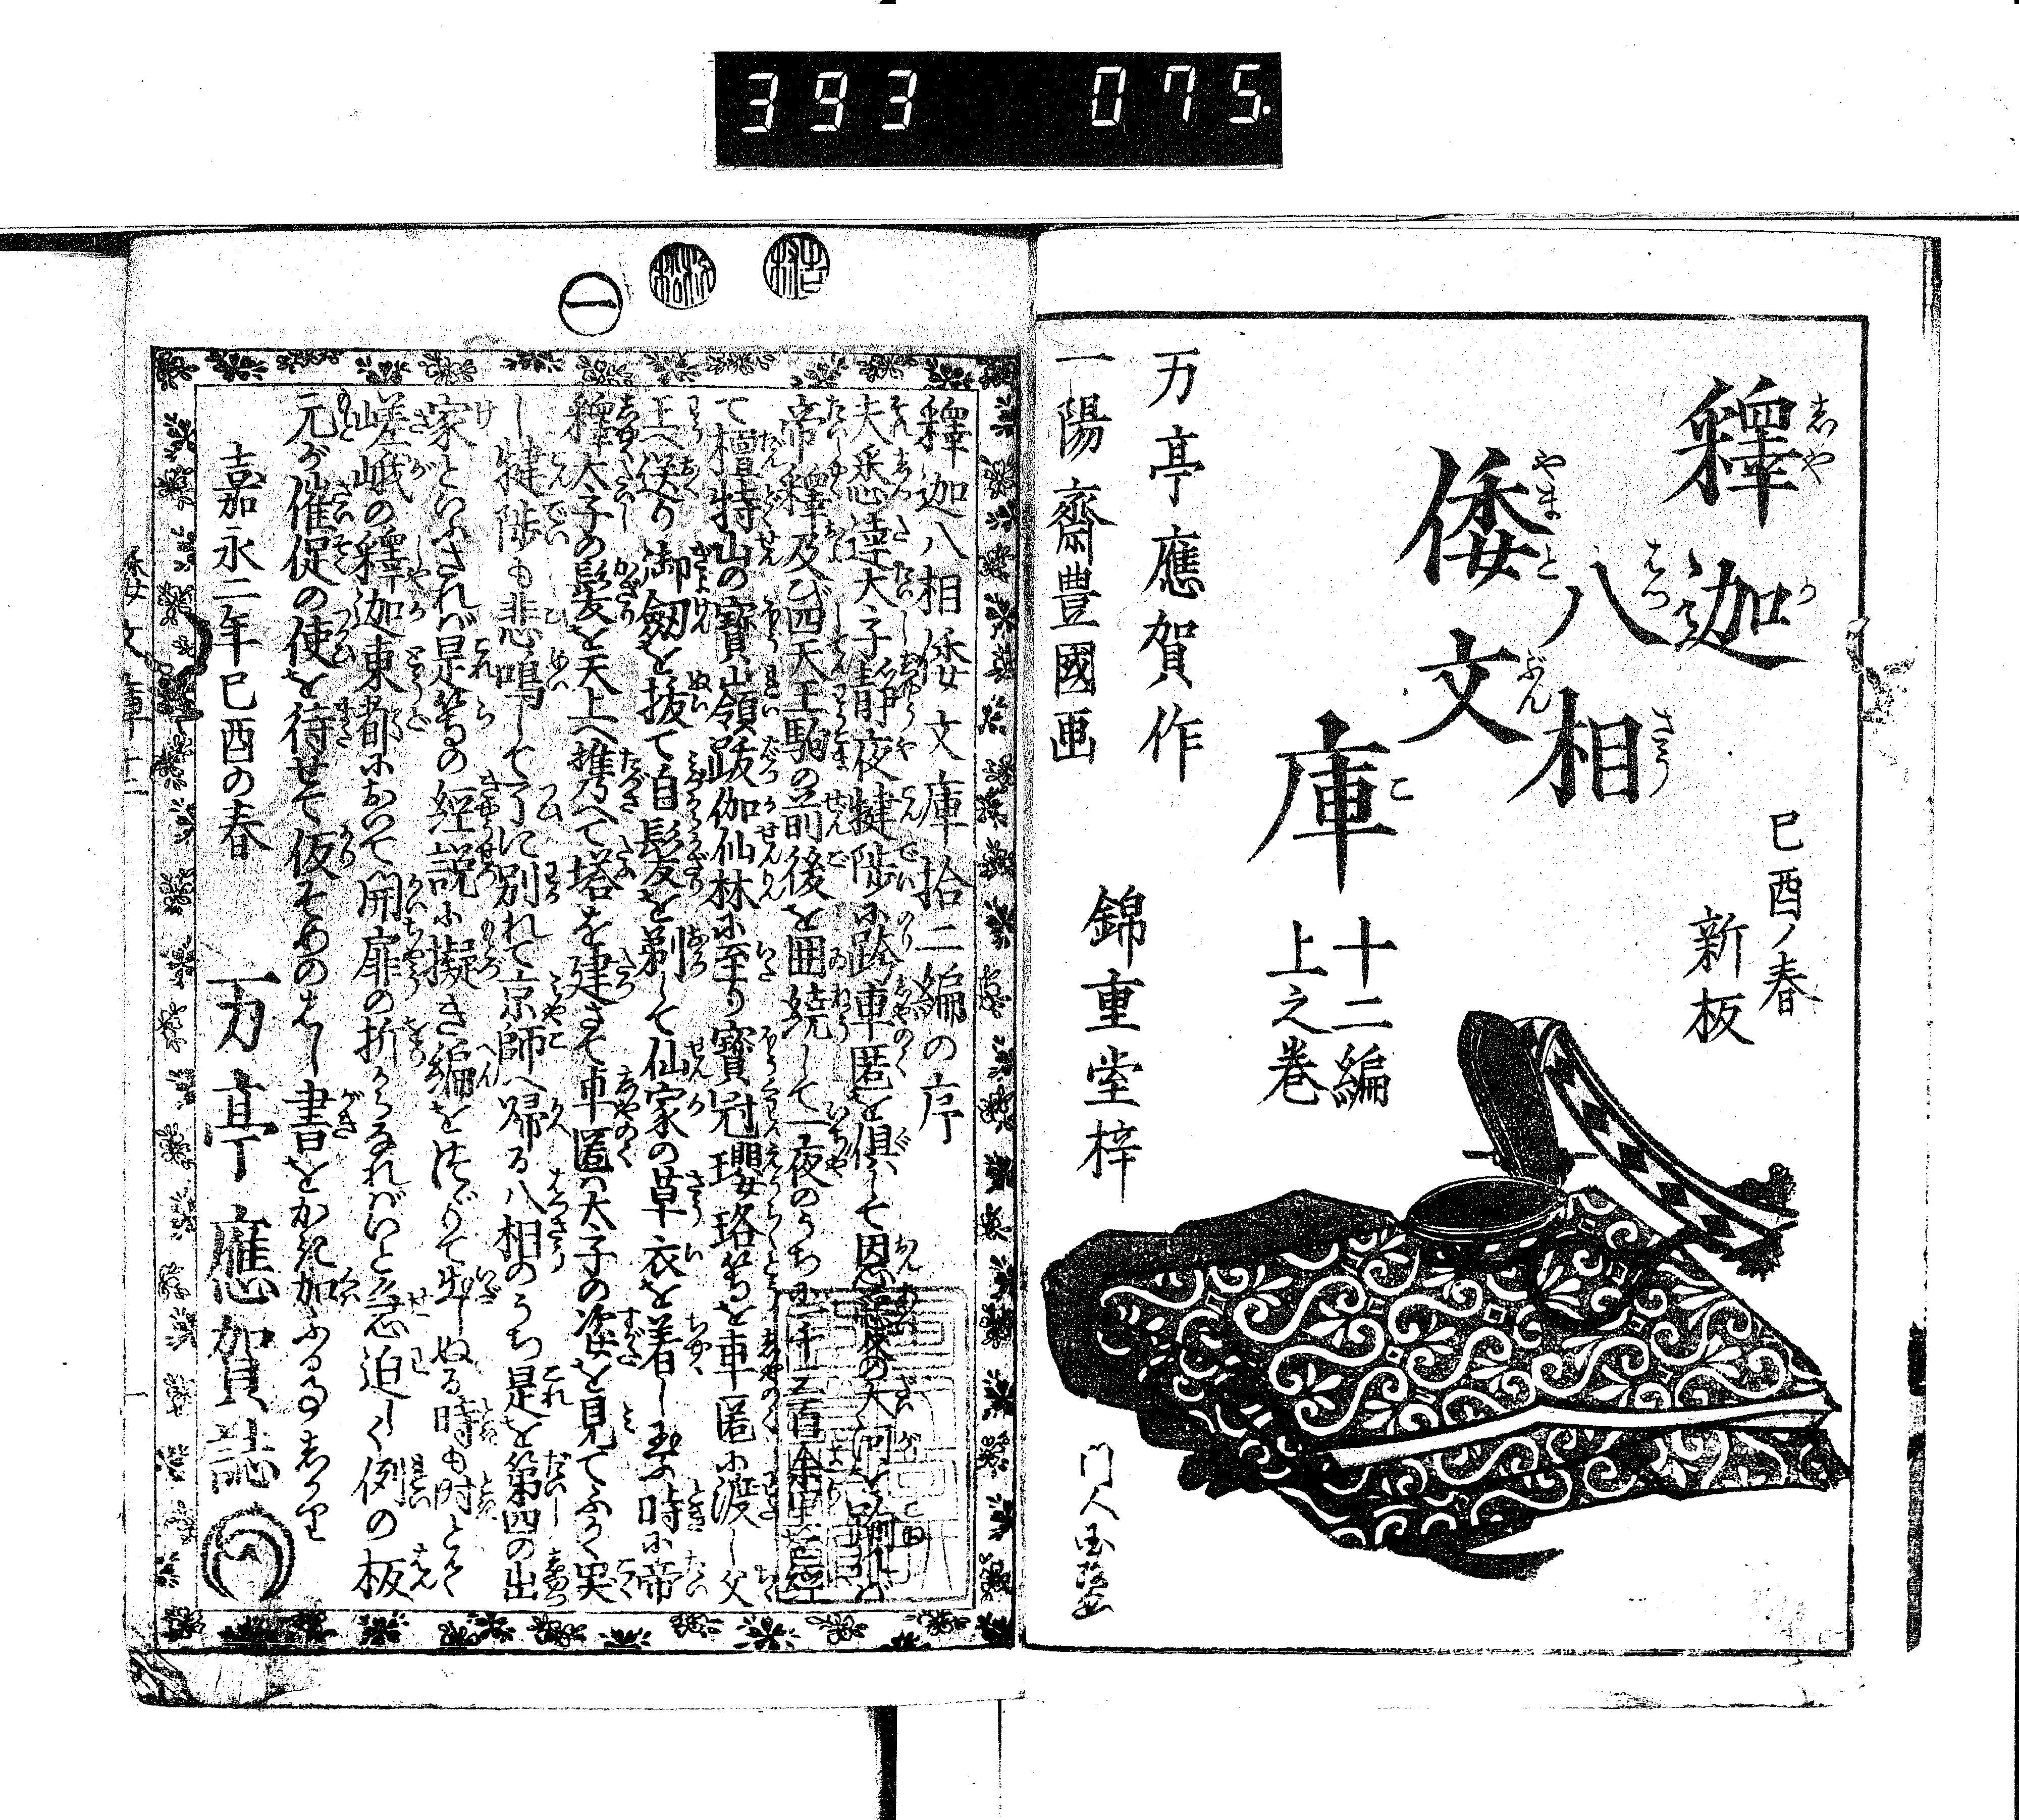 393 075.
釋迦
八相
倭文庫
十二編
上之巻
己酉ノ春
新板
万亭應賀作
一陽齋豊國画
錦重堂梓
門人
一
釋迦八相倭文庫拾二編の序
夫悉達太子静夜犍陟に跨車匿を倶して恩
帝釋及び四天王駒の前後を囲繞して一夜のうちに
て檀特山の寳嶺跋伽仙林に至り寳冠瓔珞等を車匿に渡し父
王へ送り御劔を抜て自髪を剃して仙家の草衣を着し玉ふ時に帝
釋太子の髪を天上へ携へて塔を建させ車匿ハ太子の姿を見てふかく哭
し犍陟も悲鳴して了に別れて京師へ帰る八相のうち是を第四の出
家といふされバ是等の經説に擬き編をつゞりて出しぬる時も時とて
嵯峨の釋迦東都において開扉の折からなれバいと急迫しく例の板
元が催促の使を待せて仮そめのはし書をかき加ふる事しかり
嘉永二年己酉の春
万亭應賀誌
倭文庫十二